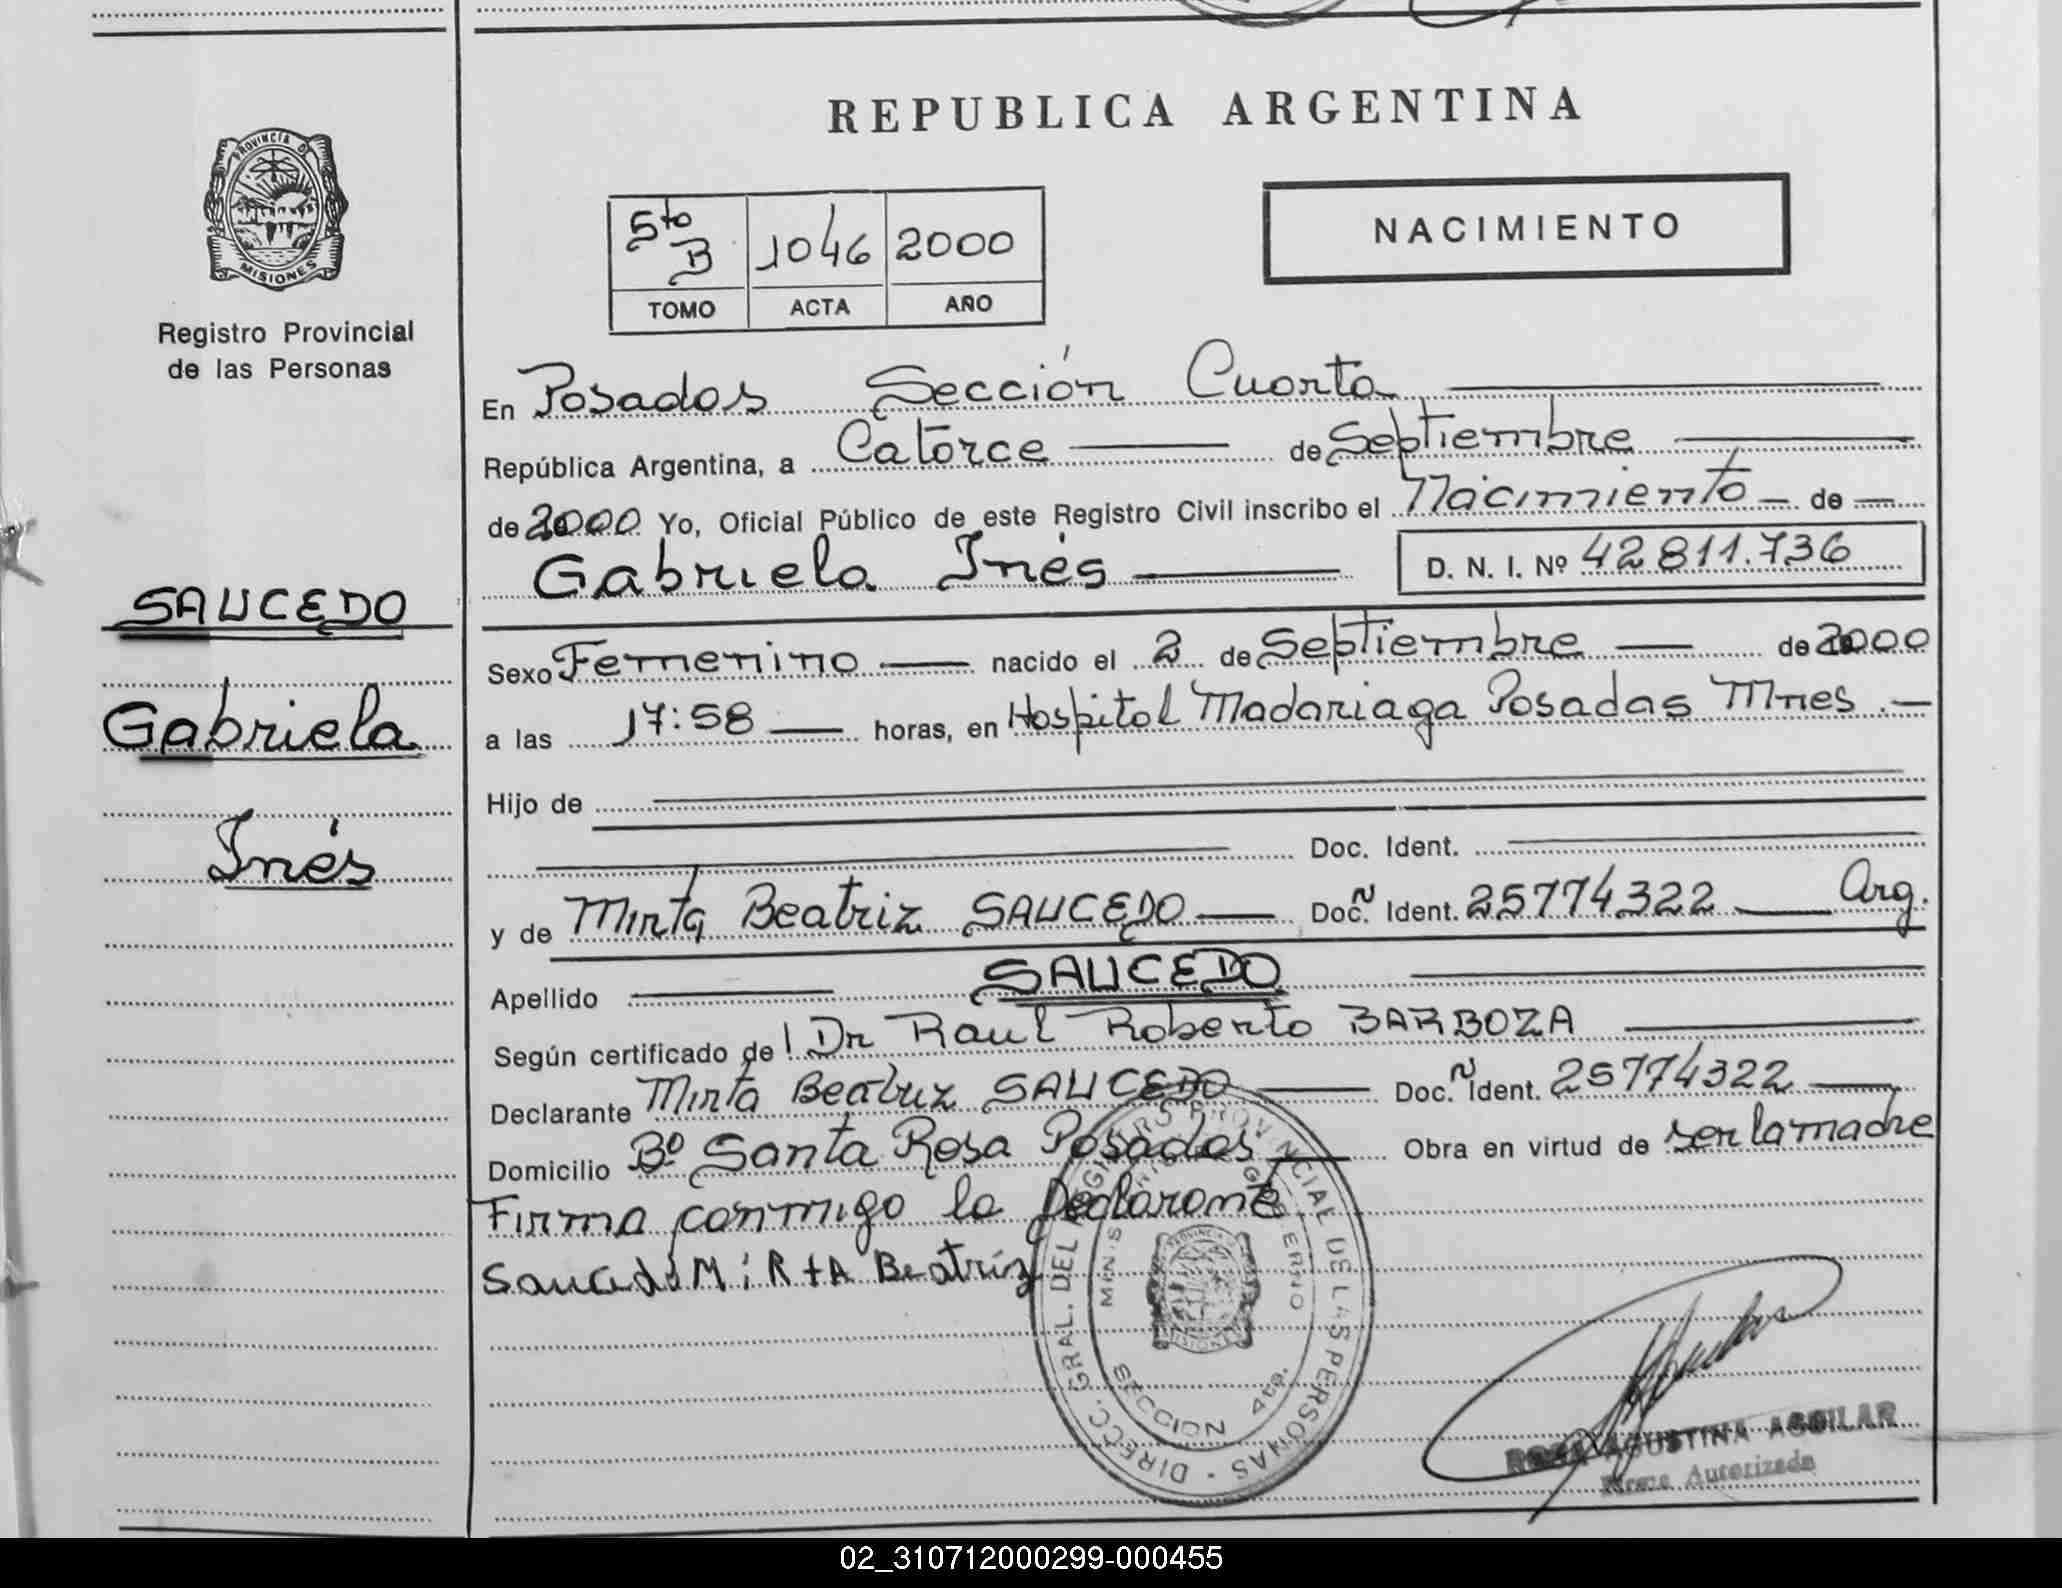 REPUBLICA ARGENTINA
PROVINCIA DE
MISIONES
Registro Provincial
de las Personas
5to B 1046 2000
TOMO ACTA AÑO
NACIMIENTO
En Posadas Sección Cuarta
República Argentina, a Catorce de Septiembre
de 2000 Yo, Oficial Público de este Registro Civil inscribo el Nacimiento de
Gabriela Inés D. N. I. Nº 42811.736
SAUCEDO
Gabriela
Inés
Sexo Femenino nacido el 2 de Septiembre de 2000
a las 17:58 horas, en Hospital Madariaga Posadas Mnes.
Hijo de
Doc. Ident.
y de Mirta Beatriz SAUCEDO Doc. Ident. 25774322 Arg.
Apellido SAUCEDO
Según certificado de Dr Raul Roberto BARBOZA
Declarante Mirta Beatriz SAUCEDO Doc. Ident. 25774322
Domicilio Bº Santa Rosa Posadas Obra en virtud de ser la madre
Firma conmigo la Declarante
Saucedo MiRtA Beatríz
DIRECC. GRAL. DEL REGIST. PROVINCIAL DE LAS PERSONAS
SECCION 4ta.
AGUSTINA AGUILAR
Firma Autorizada
02_310712000299-000455